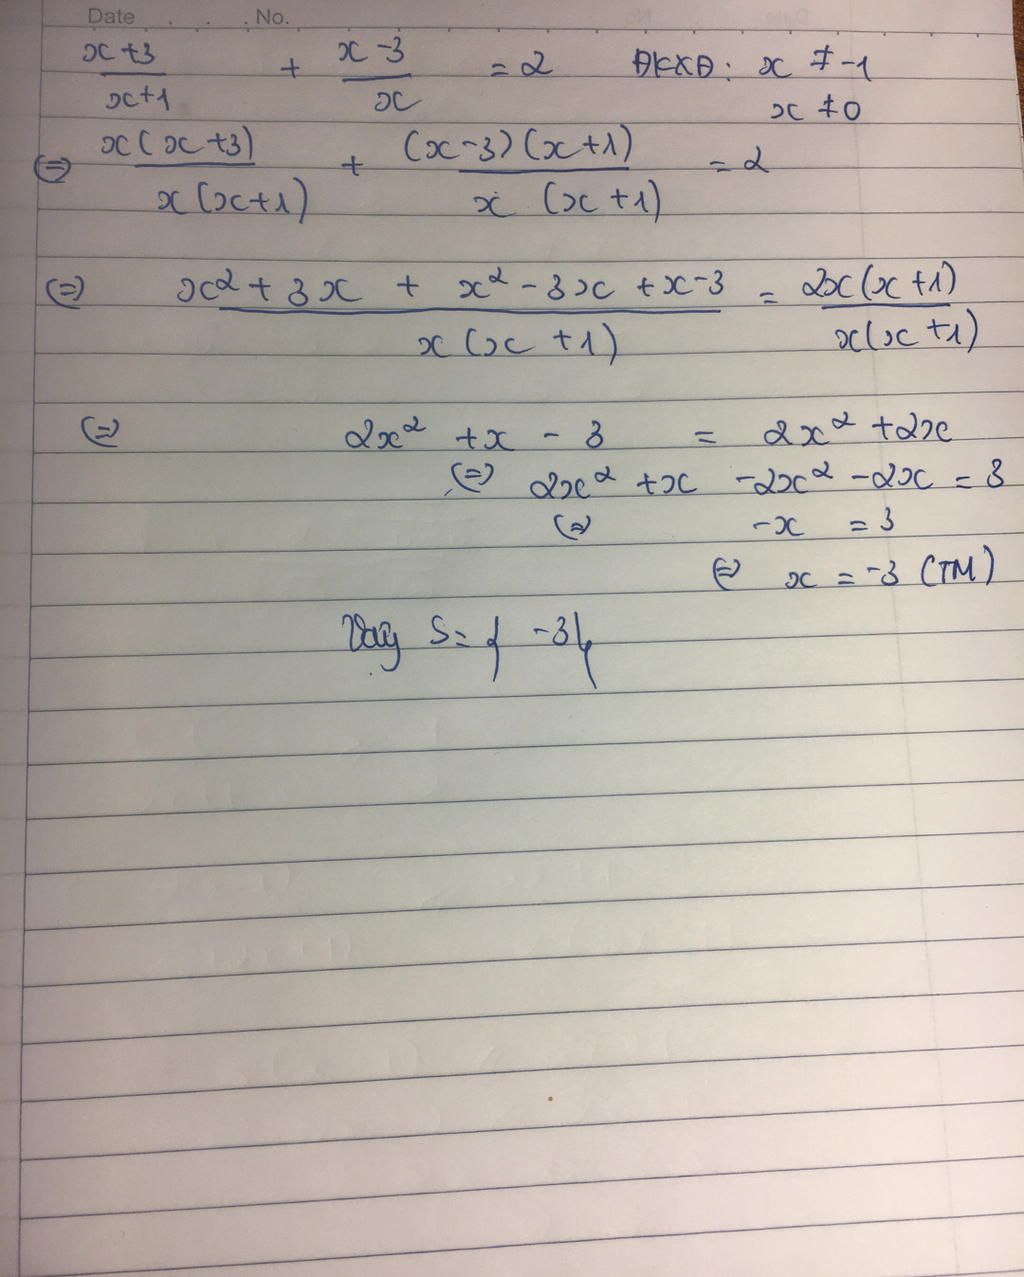 Date . . . . No.
x+3/x+1 + x-3/x = 2 ĐKXĐ: x ≠ -1
x ≠ 0
(=) x(x+3)/x(x+1) + (x-3)(x+1)/x(x+1) = 2
(=) x² + 3x + x² - 3x + x-3/x(x+1) = 2x(x+1)/x(x+1)
(=) 2x² + x - 3 = 2x² + 2x
(=) 2x² + x - 2x² - 2x = 3
(=) -x = 3
(=) x = -3 (TM)
Vậy S = { -3 }